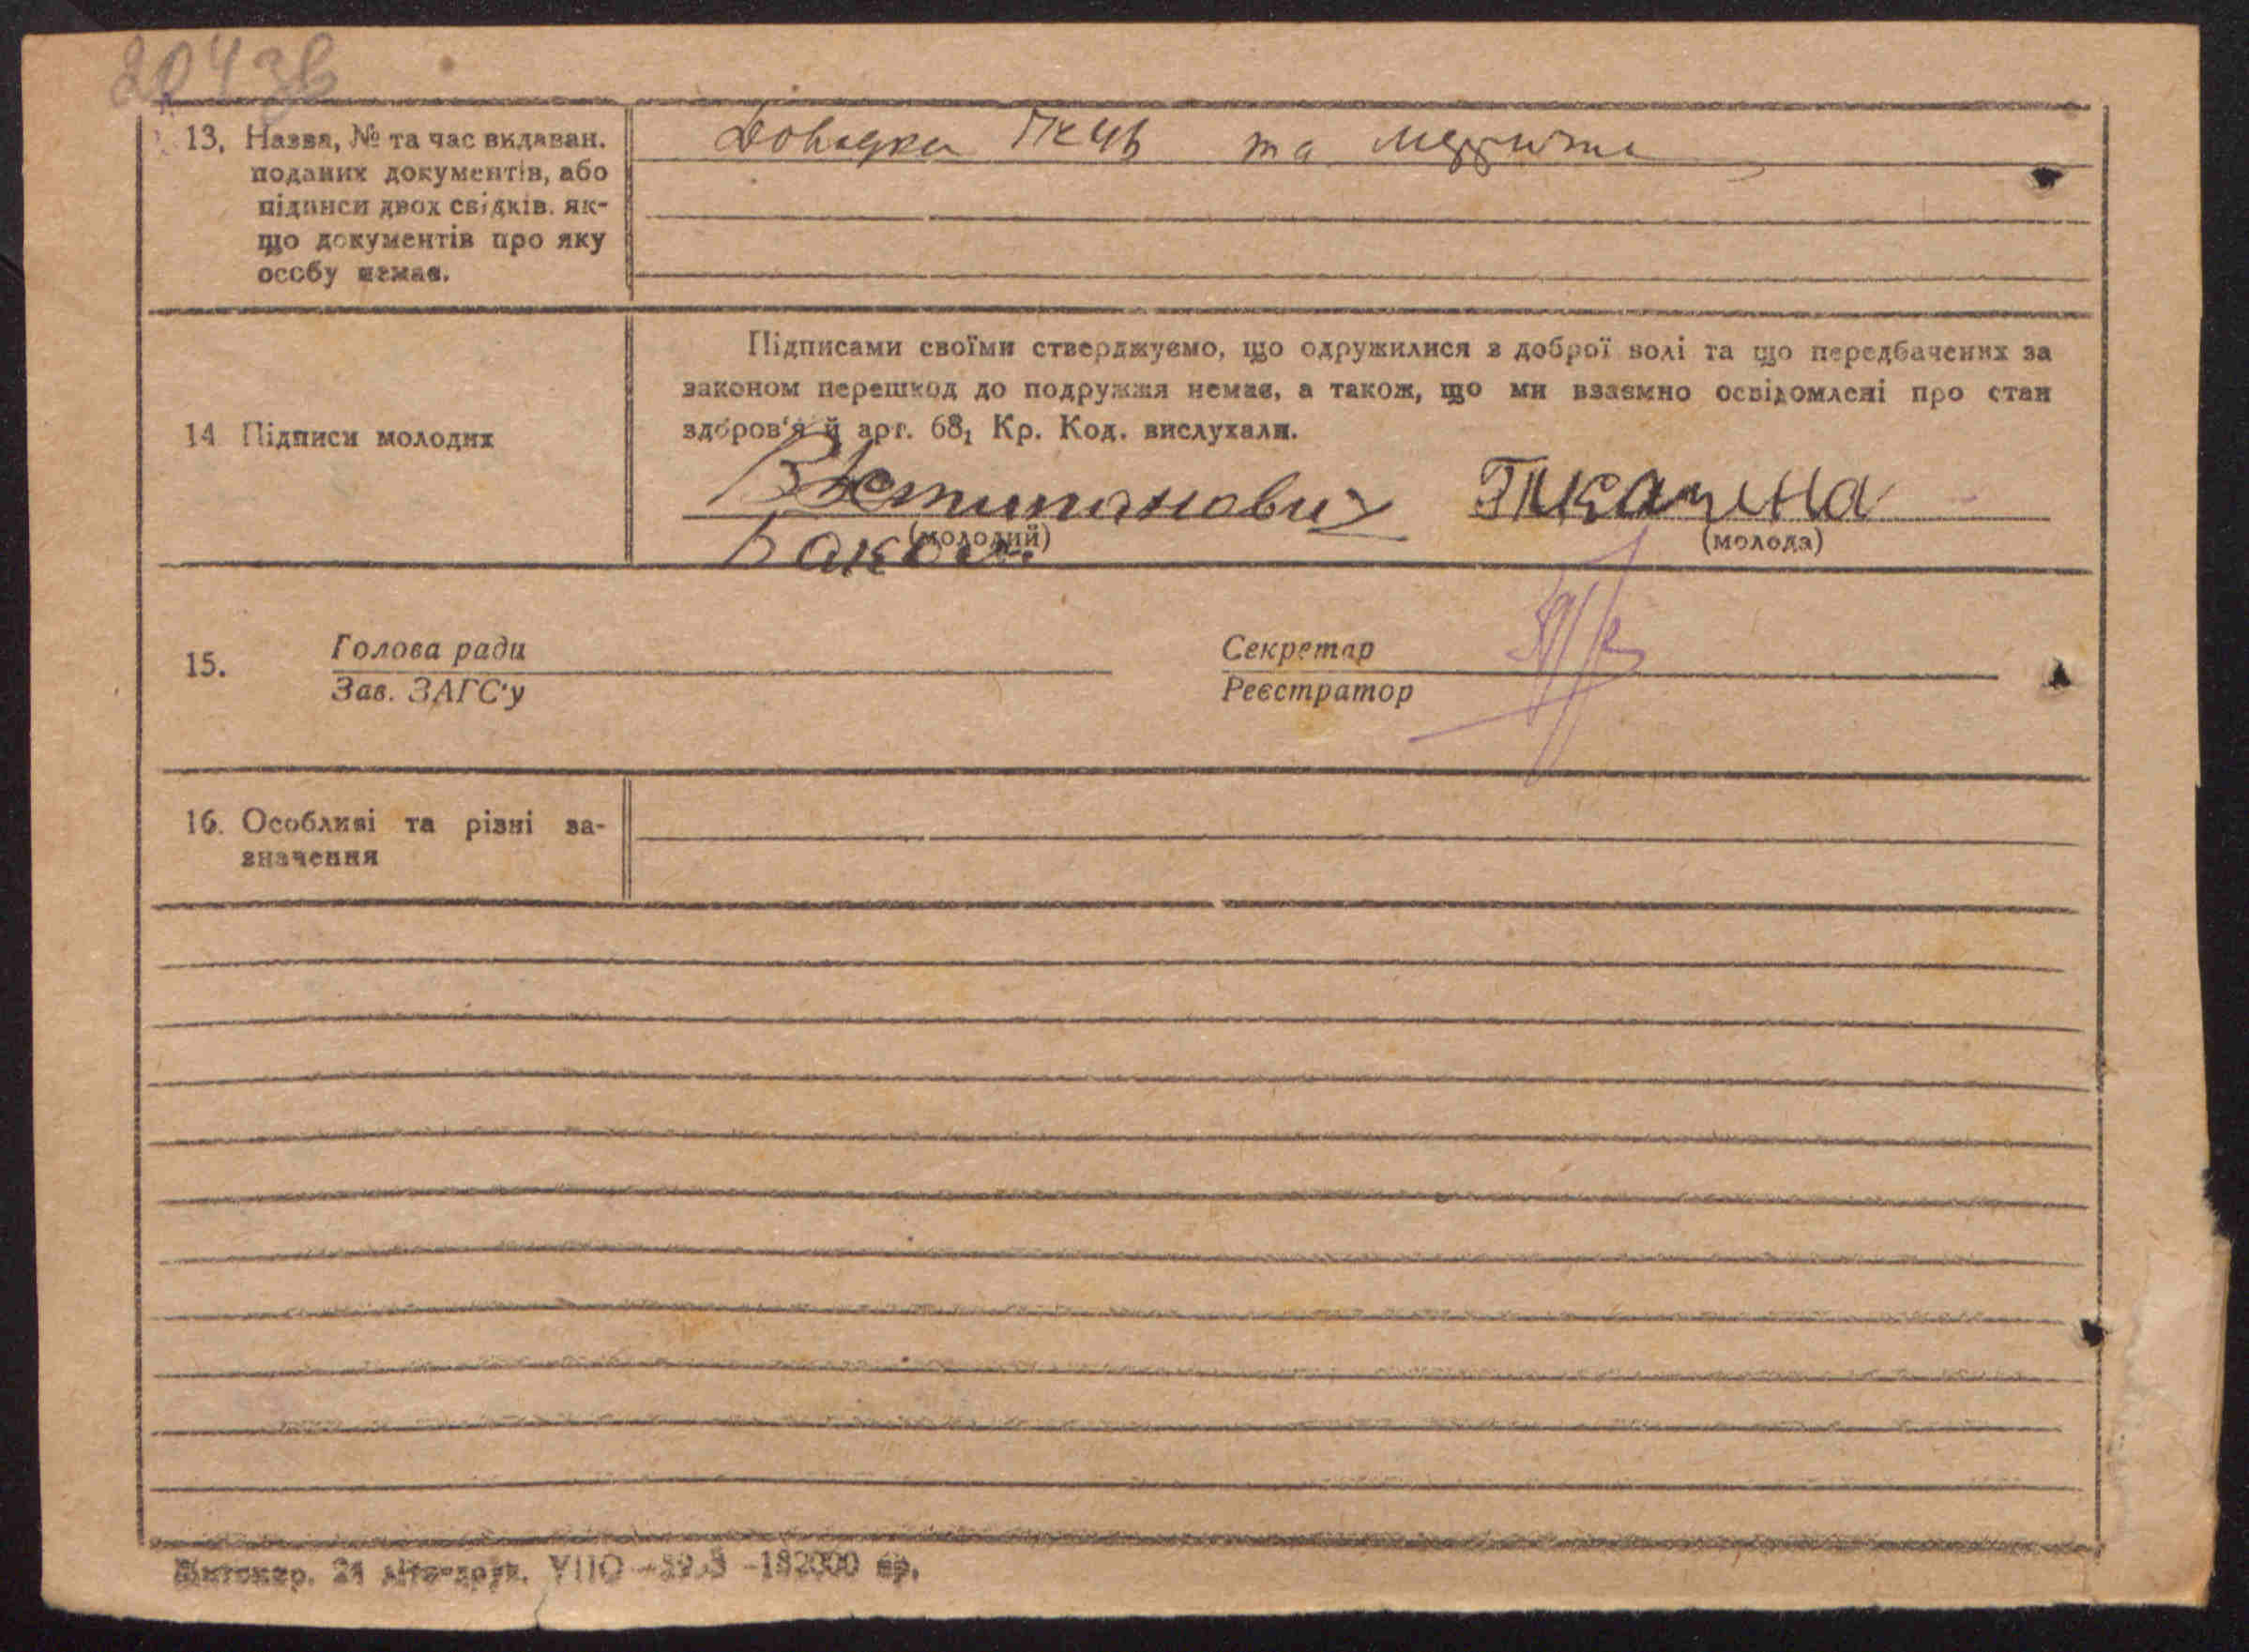 2043в
13, Назва, № та час видаван.
поданих документів, або
підписи двох свідків. як-
що документів про яку
особу немає.
Довідки та
14 Підписи молодих
Підписами своїми стверджуємо, що одружилися з доброї волі та що передбачених за
законом перешкод до подружжя немає, а також, що ми взаємно освідомлені про стан
здоров'я й арт. 68₁ Кр. Код. вислухали.
Ткачина
(молодий)
(молода)
15.
Голова ради
Зав. ЗАГС'у
Секретар
Реєстратор
16. Особливі та різні за-
значення
Житомир. 24 літо-друк. УПО 182000 пр.